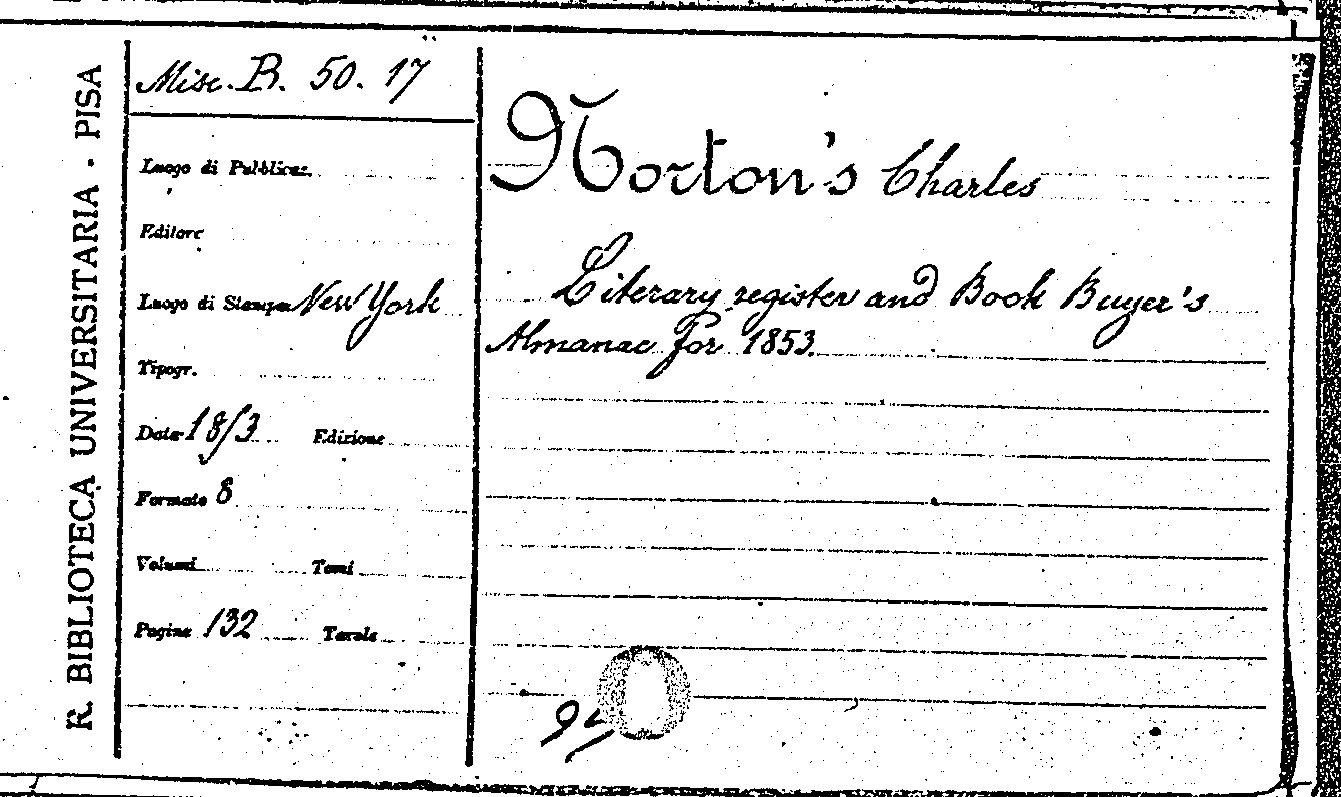 R. BIBLIOTECA UNIVERSITARIA - PISA
Misc. B. 50. 17
Luogo di Pubblicaz.
Editore
Luogo di Stampa New York
Tipogr.
Data 1853 Edizione
Formato 8
Volumi Tomi
Pagine 132 Tavole
Norton's Charles
Literary register and Book Buyer's
Almanac for 1853.